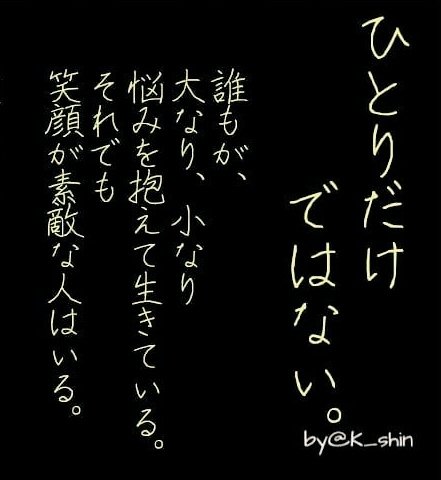 ひとりだけ
ではない。
誰もが、
大なり、小なり
悩みを抱えて生きている。
それでも
笑顔が素敵な人はいる。
by@K_shin